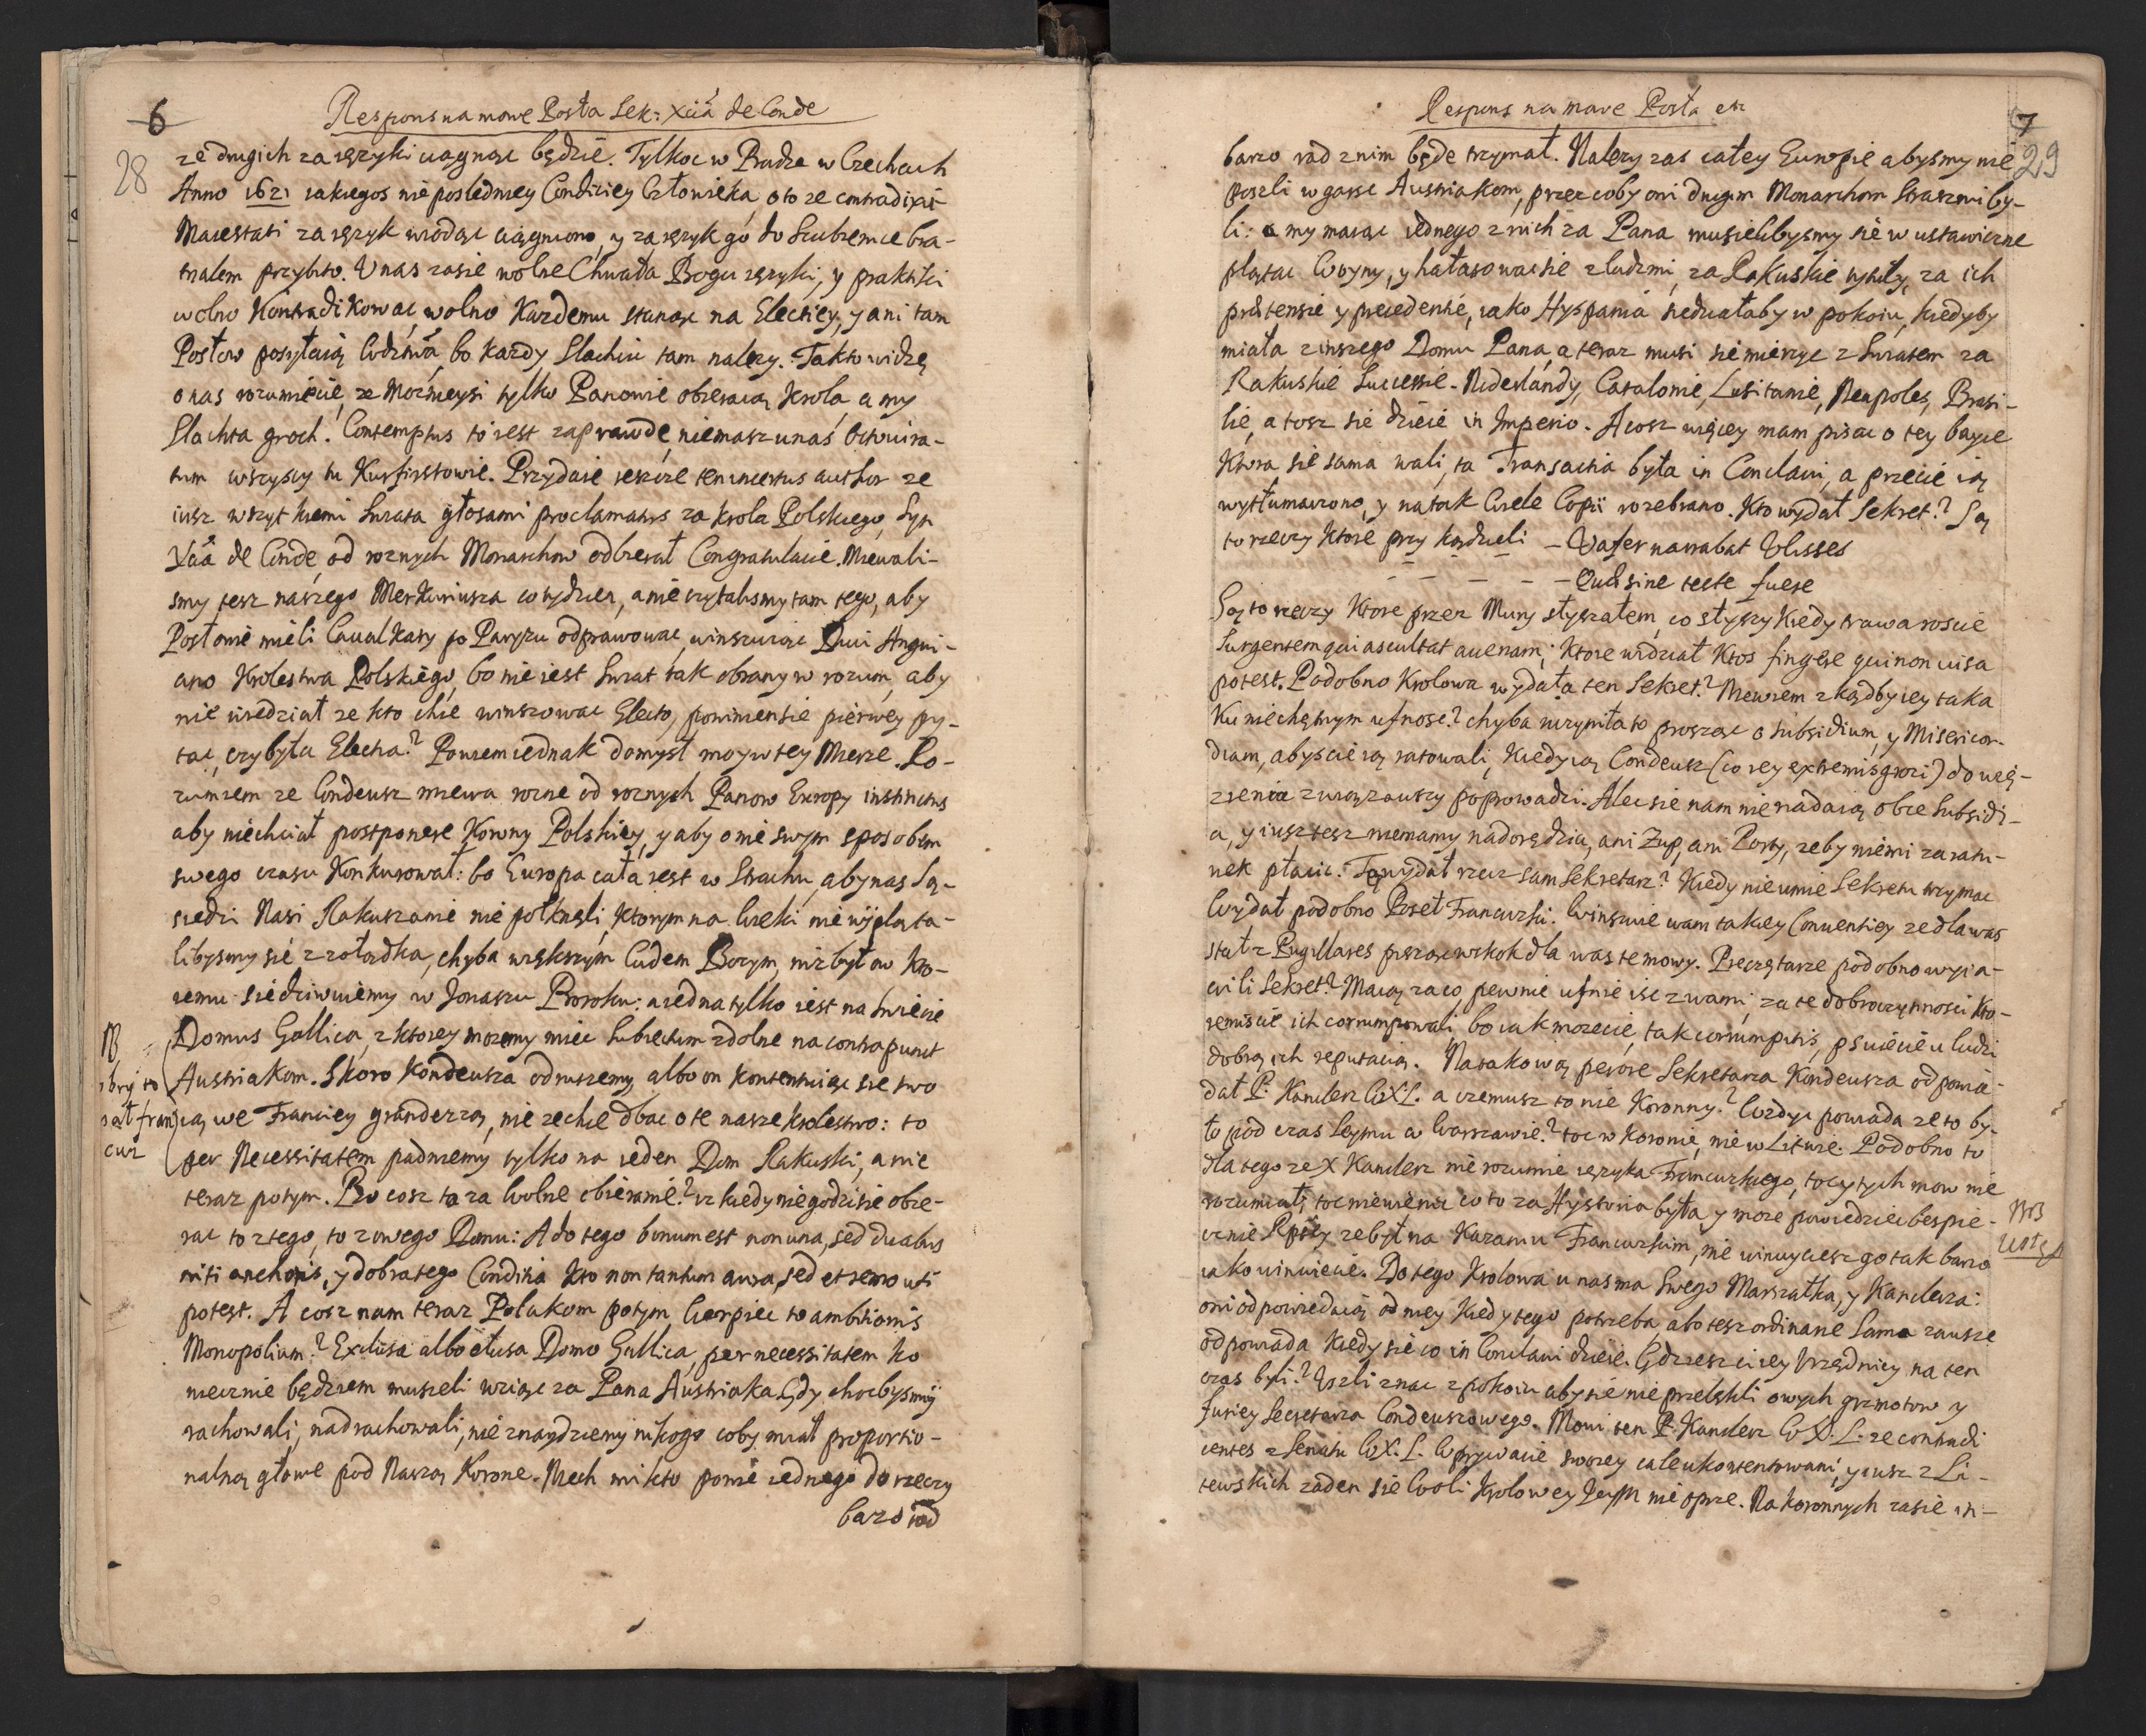 6
28
Respons na mowe Posła Sek: Xcia de Conde
ze drugich za ięzyki ciągnąc będzie. Tylkoc w Pradze w Czechach
Anno 1621 iakiegos nie posledniey Condiciey Człowieka, o to ze contradixit
Maiestati za ięzyk wiodąc ciągniono, y za ięzyk go do Szubienice bra-
tnalem przybito. U nas zasie wolne Chwała Bogu ięzyki, y praktiki
wolno Kontradikowac, wolno Kazdemu stanąc na Elekciey, y ani tam
Posłow posyłaią bo Kazdy Slachcic tam nalezy. Tak to widzę
o nas rozumiecie, ze Moznieysi tylko Panowie obieraią Krola, a my
Slachta groch. Contemptus to iest zaprawde niemasz u nas
tum wszyscy tu Kurfirsztowie. Przydaie ieszcze ten incertus author ze
iusz wszytkiemi Swiata głosami proclamatus za Krola Polskiego, Syn
Xcia de Conde, od roznych Monarchow odbierał Congratulacie. Miewali-
smy tesz naszego Merkuriusza co tydzien, a nie czytalismy tam tego, aby
Posłowie mieli Caualkaty po Paryżu odprawowac, winszuiąc Duci Angui-
ano Krolestwa Polskiego, bo nie iest Swiat tak obrany w rozum, aby
nie wiedział ze kto chce winszowac Electo, powinien sie pierwey py-
tac, czy była Electa? Powiem iednak domysł moy w tey Mierze. Ro-
zumiem ze Condeusz miewa rozne od roznych Panow Europy instinctus
aby niechciał postponere Korony Polskiey, y aby o nie swym sposobem
swego czasu Konkurował: bo Europa cała iest w Strachu, aby nas Są-
siedzi Nasi Rakuszanie nie połknęli, Ktorym na wieki nie wypląta-
libysmy sie z zołądka, chyba większym Cudem Bozym, niz był ow kto-
remu sie dziwuiemy w Jonaszu Proroku: a iedna tylko iest na Swiecie
Domus Gallica, z ktorey mozemy miec Subiectum zdolne na contrapunct
Austriakom. Skoro Kondeusza odrzuciemy, albo on Kontentuiąc sie swo
ią we Franciey granderzą, nie zechce dbac o te nasze krolestwo: to
per Necessitatem padniemy tylko na ieden Dom Rakuski, a nie
teraz potym. Bo cosz to za Wolne obieranie? iz kiedy niegodzi sie obie-
rac to z tego, to z owego Domu: A do tego bonum est non una, sed duabus
niti anchoris, y dobra tego Conditia Kto non tantum aura, sed et remo uti
potest. A cosz nam teraz Polakom potym Cierpiec to ambitionis
Monopolium? Exclusa albo elusa Domo Gallica, per necessitatem ko
niecznie będziem musieli wziąc za Pana Austriaka. Gdy chocbysmy
rachowali, nadrachowali, nie znaydziemy nikogo coby miał proportio-
nalną głowe pod Naszą Korone. Niech mi kto powie iednego do rzeczy
barzo rad
NB
cuz
7
29
Respons na mowe Posła etc
barzo rad z nim będe trzymał. Nalezy zas całey Europie abysmy nie
poszli w garsc Austriakom, przez coby oni drugim Monarchom Straszni by-
li: a my maiąc iednego z nich za Pana musielibysmy sie w ustawiczne
plątac Woyny, y hałasowac sie z ludzmi, za Rakuskie tytuły, za ich
prætensie y precedentie, iako Hyspania siedziałaby w pokoiu, kiedyby
miała z inszego Domu Pana, a teraz musi sie mierzyc z Swiatem za
Rakuskie Successie. Niderlandy, Catalonie, Lusitanie, Neapoles, Brasi-
lie, a tosz sie dzieie in Imperio. A cosz więcey mam pisac o tey bayce
Ktora sie sama wali, ta Transactia była in Conclaui, a przecie ią
wytłumaczono, y na tak wiele Copii rozebrano. Kto wydał Sekret? Są
to rzeczy Ktore przy kądzieli – Vafer narrabat Ulisses
– – – – – Quæ sine teste fuere
Są to rzeczy Ktore przez Mury słyszałem, co słyszy Kiedy trawa roscie
Surgentem qui ascultat auenam; Ktore widział Ktos fingere qui non uisa
potest. Podobno Krolowa wydała ten Sekret? Niewiem z kądby iey taka
Ku niechętnym ufnosc? chyba uczyniła to prosząc o subsidium, y Misericor-
diam, abyscie ią ratowali, Kiedy ią Condeusz (co iey extremis grozi) do wię-
zienia związawszy poprowadzi. Alec sie nam nie nadaią obce Subsidi-
a, y iusz tesz niemamy na dorędziu, ani Zup, ani Porty, zeby niemi za ratu-
nek płacic. wydał rzecz sam Sekretarz? Kiedy nie umie Sekretu trzymac
Wydał podobno Poseł Francuzki. Winszuie wam takiey Conuentiey ze dla was
stał z Pugillares pisząc wskok dla was te mowy. Pieczętarze podobno wyia-
wili Sekret? Maią zaco pewnie ufnie isc z wami, za te dobroczynnosci Kto-
remiscie ich corrumpowali, bo iak mozecie, tak corrumpitis, psuiecie u ludzi
dobrą ich reputacią. Na takową perore Sekretarza Kondeusza odpowie-
dał P. Kanclerz WXL. a czemusz to nie Koronny? Wszdyc powiada ze to by-
ło pod czas Seymu w Warszawie? toc w Koronie, nie w Litwie. Podobno to
dla tego ze X Kanclerz nie rozumie ięzyka Francuzkiego, toc y tych mow nie
rozumiał, toc niewie co to za Hystoria była y moze powiedziec bespie-
cznie Rptey ze był na Kazaniu Francuzkim, nie winuyciesz go tak barzo
iako winuiecie. Do tego Krolowa u nas ma Swego Marszałka, y Kanclerza:
oni odpowiedaią od niey Kiedy tego potrzeba abo tesz ordinarie Sama zawsze
odpowiada Kiedy sie co in Conclaui dzieie. Gdzieszci iey Vrzędnicy na ten
czas byli? Uszli znac z pokoiu aby sie nie przelękli owych grzmotow y
furiey Secretarza Condeuszowego. Mowi ten P. Kanclerz W X. L. ze contradi
centes z Senatu WX. L. w prywacie swoiey całe ukontentowani, y iusz z Li-
tewskich zaden sie Woli Krolowey JeyM nie oprze. Na koronnych zasie in-
NB